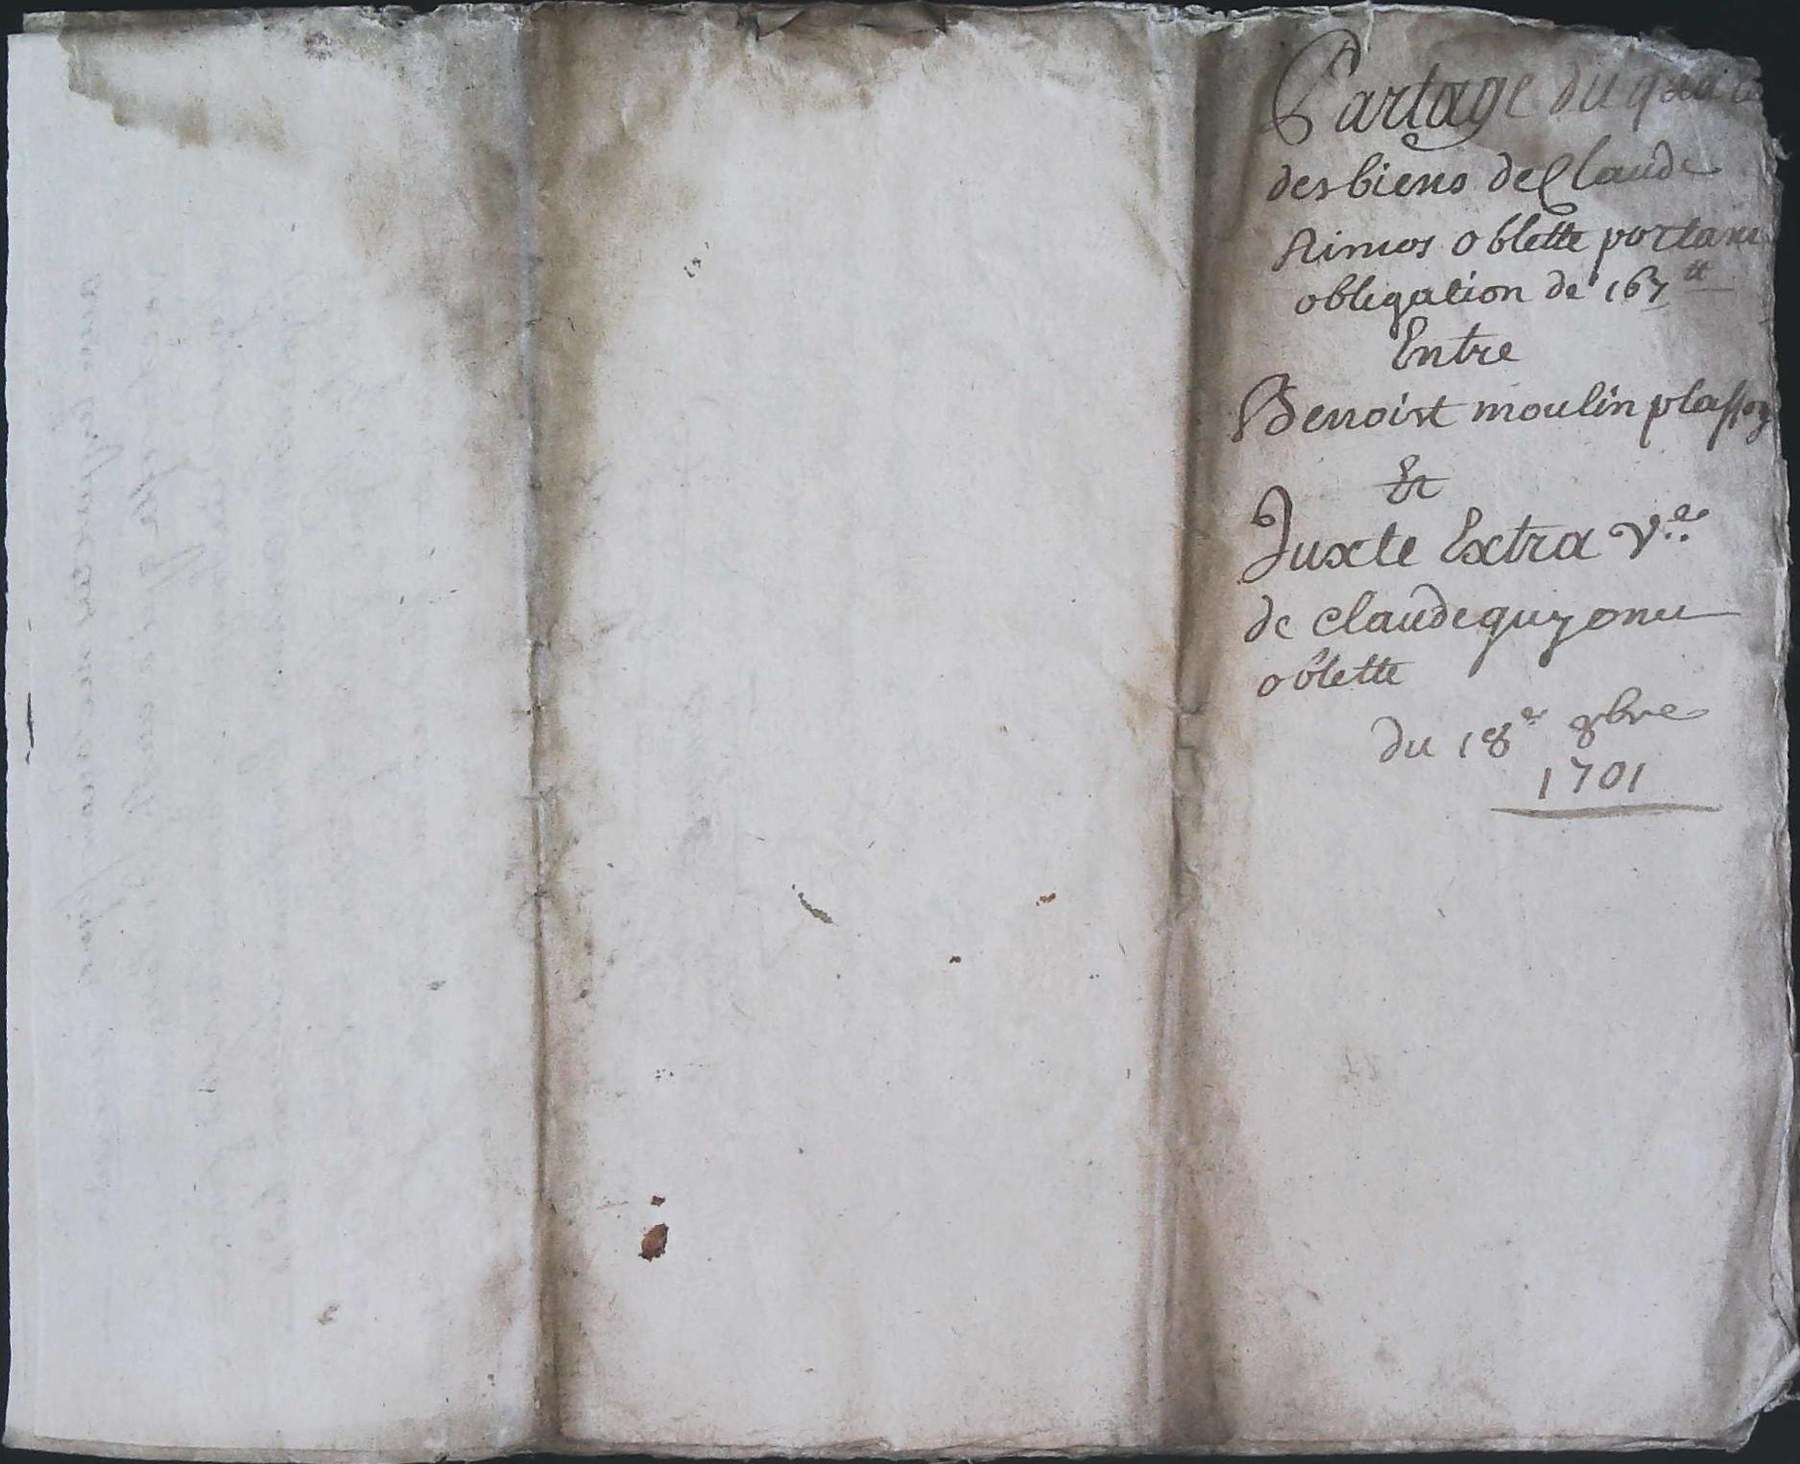 Partage du quart
des biens de Claude
Aimos oblette portant
obligation de 167 tt
Entre
Benoist moulin plassoy
Et
Juxte Extra Ve
de claude guyonnet
oblette
du 18e 8bre
1701